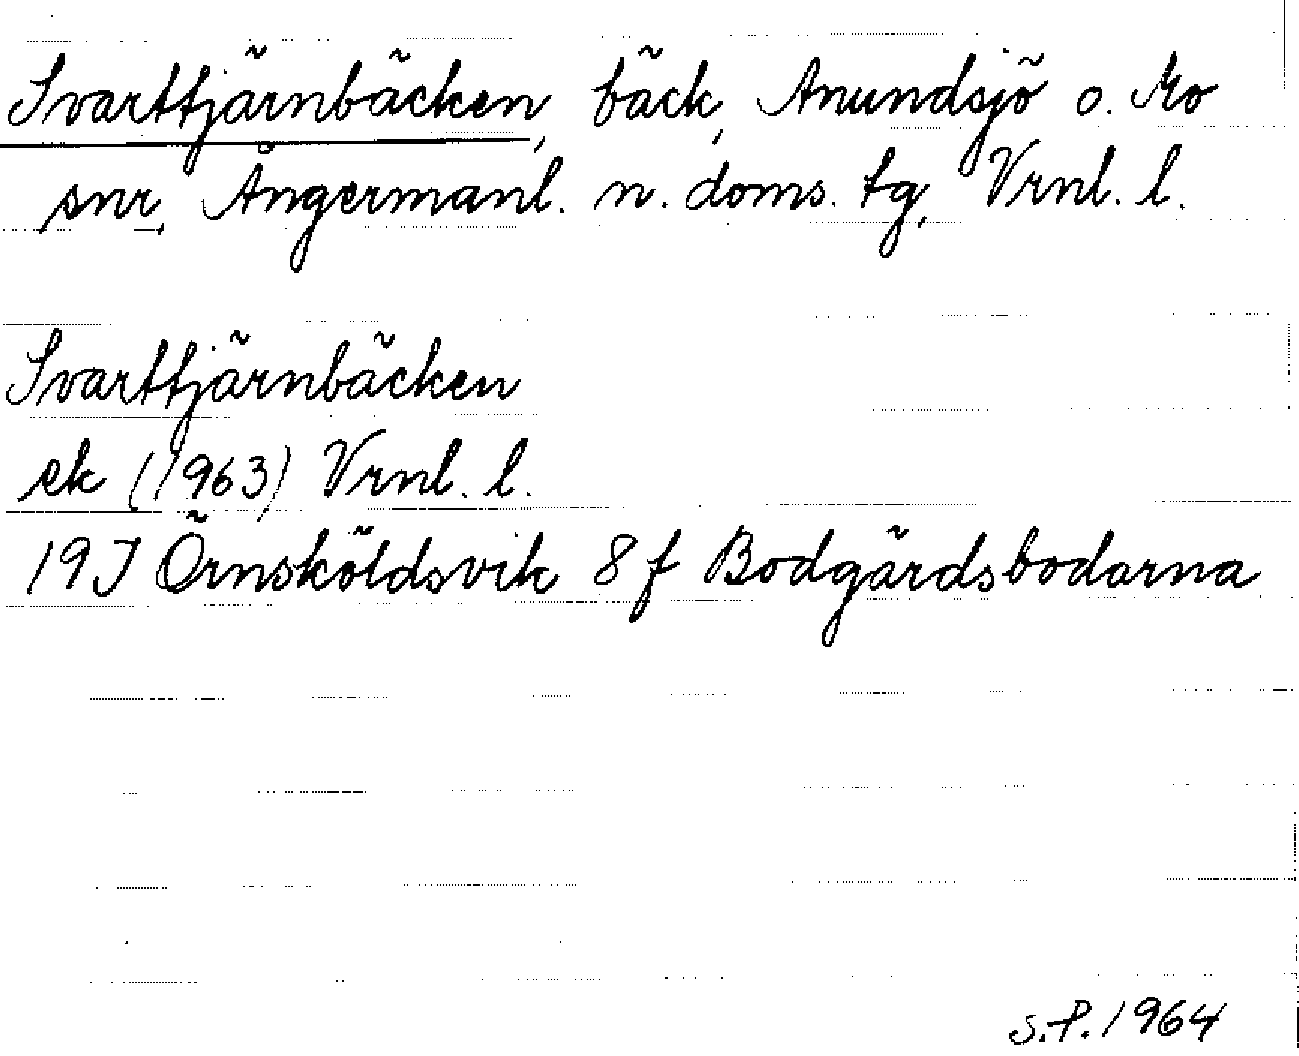 Svarttjärnbäcken, bäck, Anundsjö o. Mo
snr, Ångermanl. n. doms. tg, Vrnl. l.
Svarttjärnbäcken
ek (1963) Vrnl. l.
19J Örnsköldsvik 8f Bodgärdsbodarna
S.P. 1964